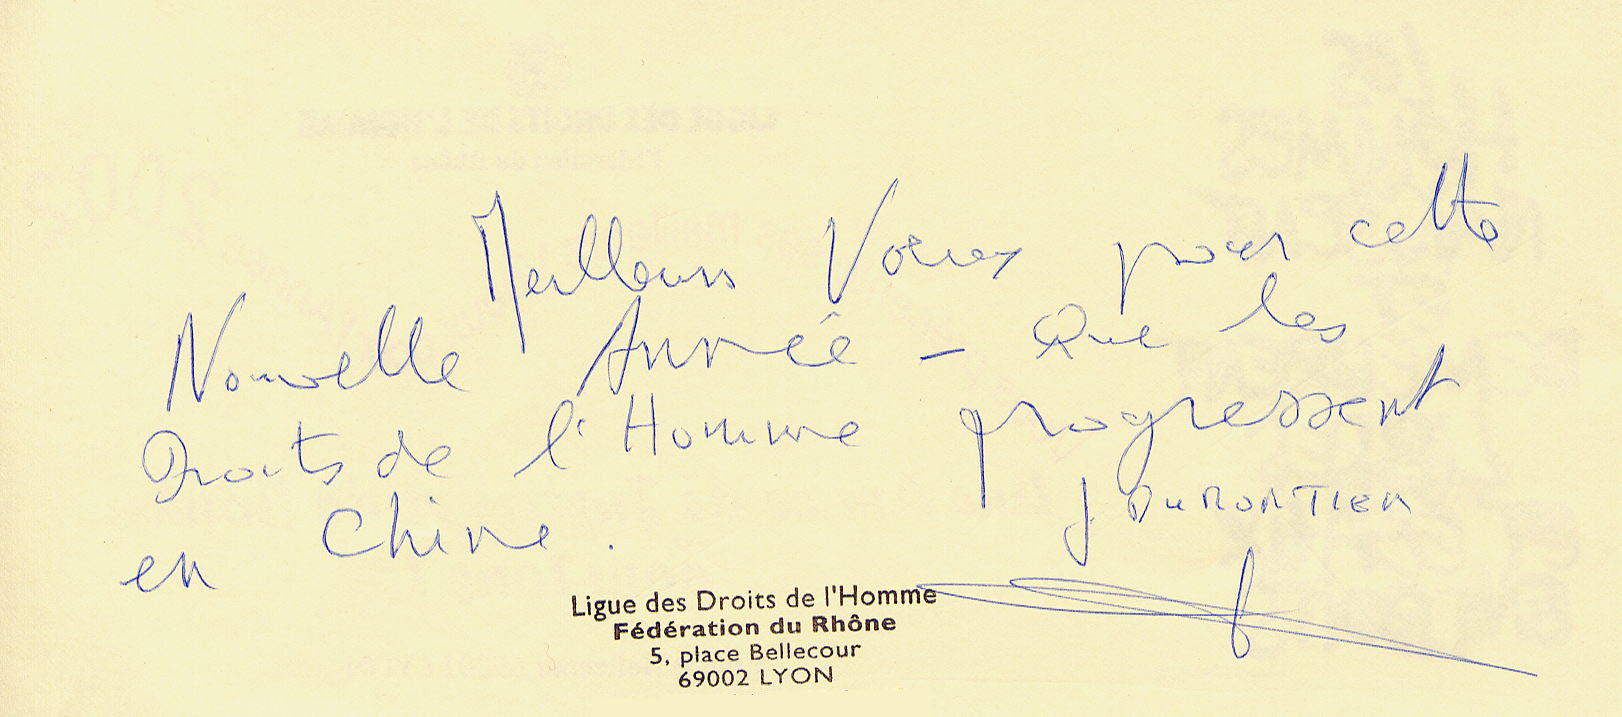 Meilleurs Voeux pour cette
Nouvelle Année – Que les
Droits de l'Homme progressent
en Chine.
J. DUMORTIER
Ligue des Droits de l'Homme
Fédération du Rhône
5, place Bellecour
69002 LYON